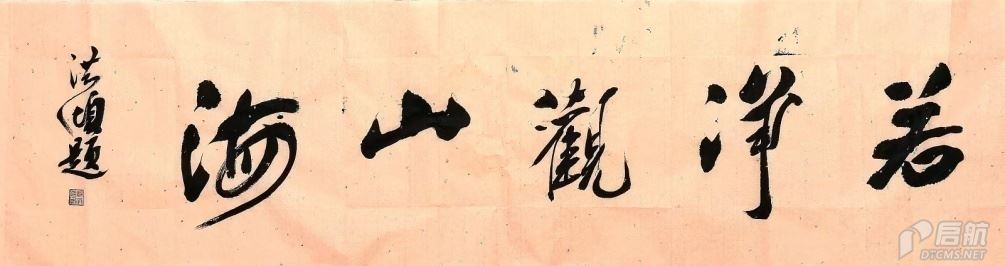 若淨觀山海
洪題
启航
DTCMS.NET